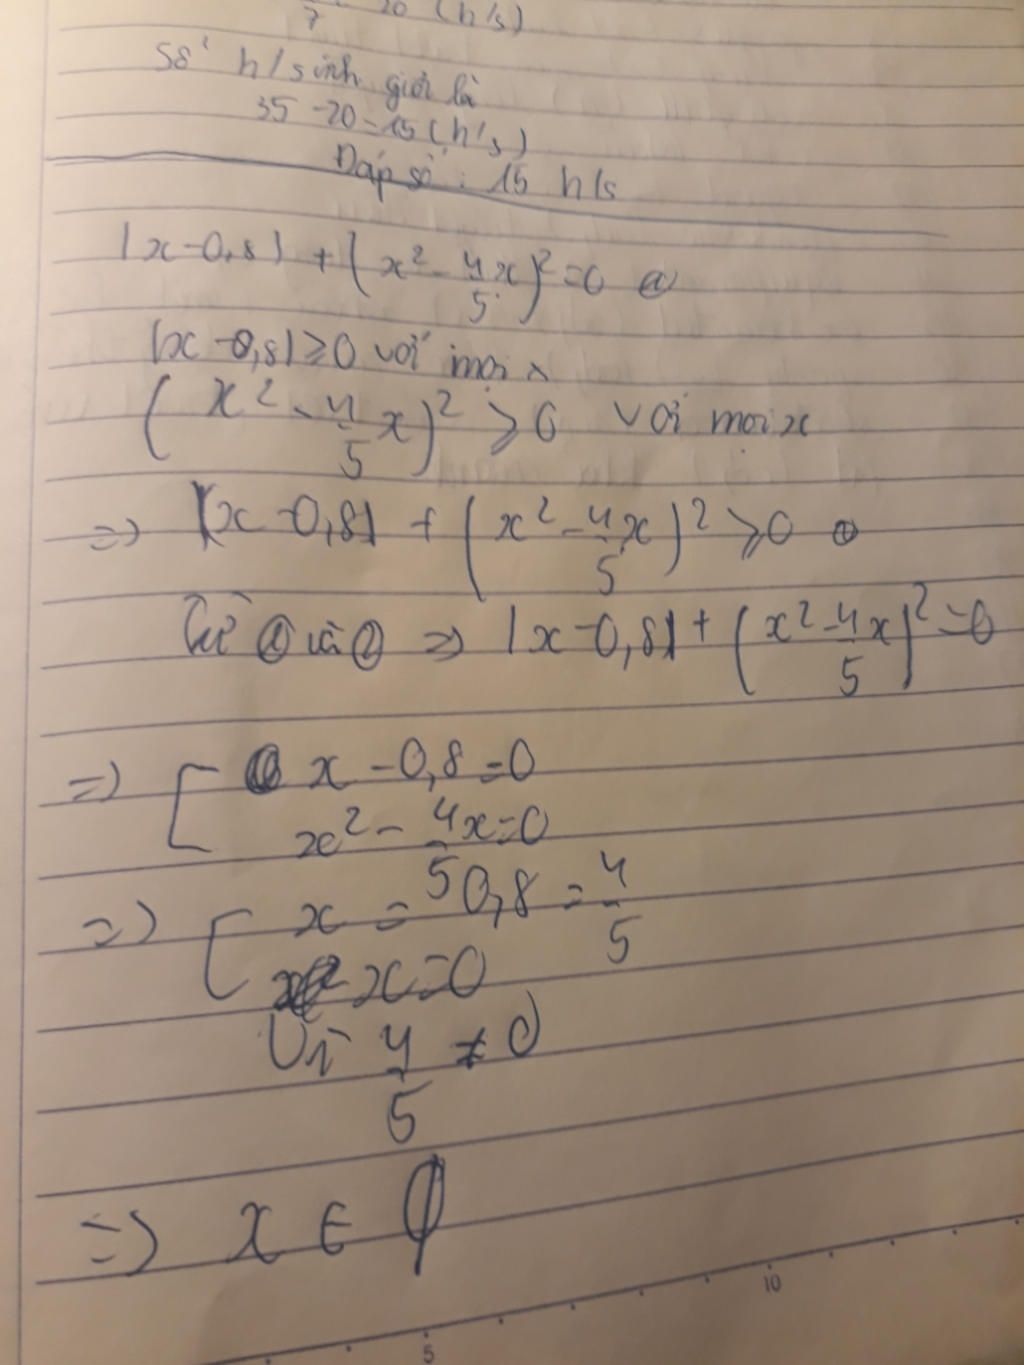 7 20 (h/s)
Số h/sinh giỏi là
35 - 20 = 15 (h/s)
Đáp số : 15 h/s
|x - 0,8| + (x² - 4/5 x)² = 0 ①
|x - 0,8| ≥ 0 với mọi x
(x² - 4/5 x)² ≥ 0 với mọi x
=> |x - 0,8| + (x² - 4/5 x)² ≥ 0 ②
Từ ① và ② => |x - 0,8| + (x² - 4/5 x)² = 0
=> [ x - 0,8 = 0
x² - 4/5 x = 0
=> [ x = 0,8 = 4/5
x = 0
Vì 4/5 ≠ 0
=> x ∈ ∅
5 10